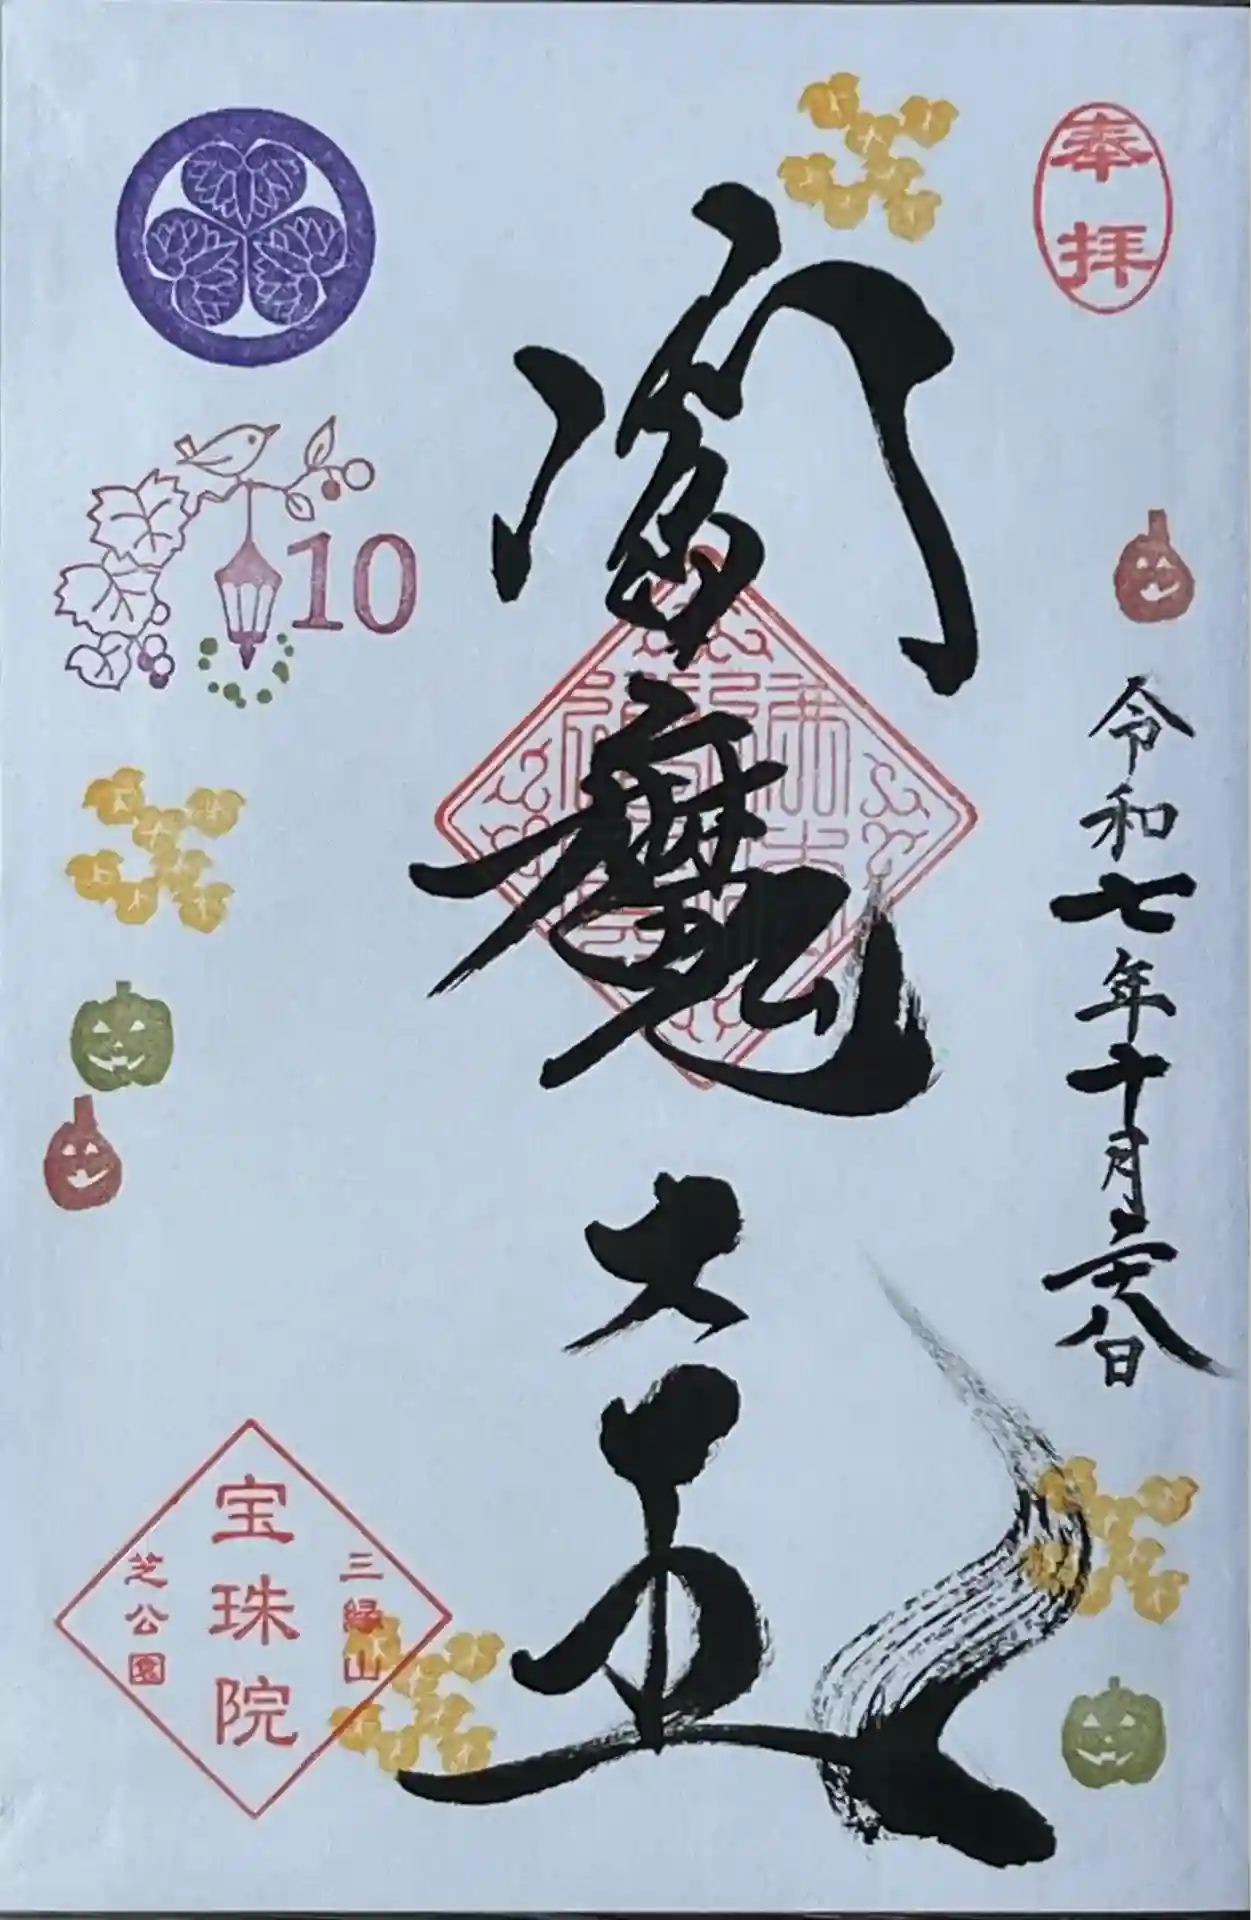 奉拝
令和七年十月二十八日
閻魔大王
10
三縁山
宝珠院
芝公園